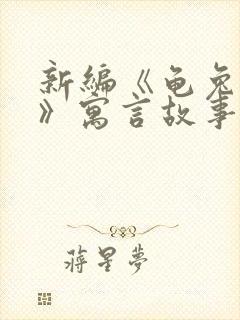 新编《龟兔
》寓言故事
蒋星梦